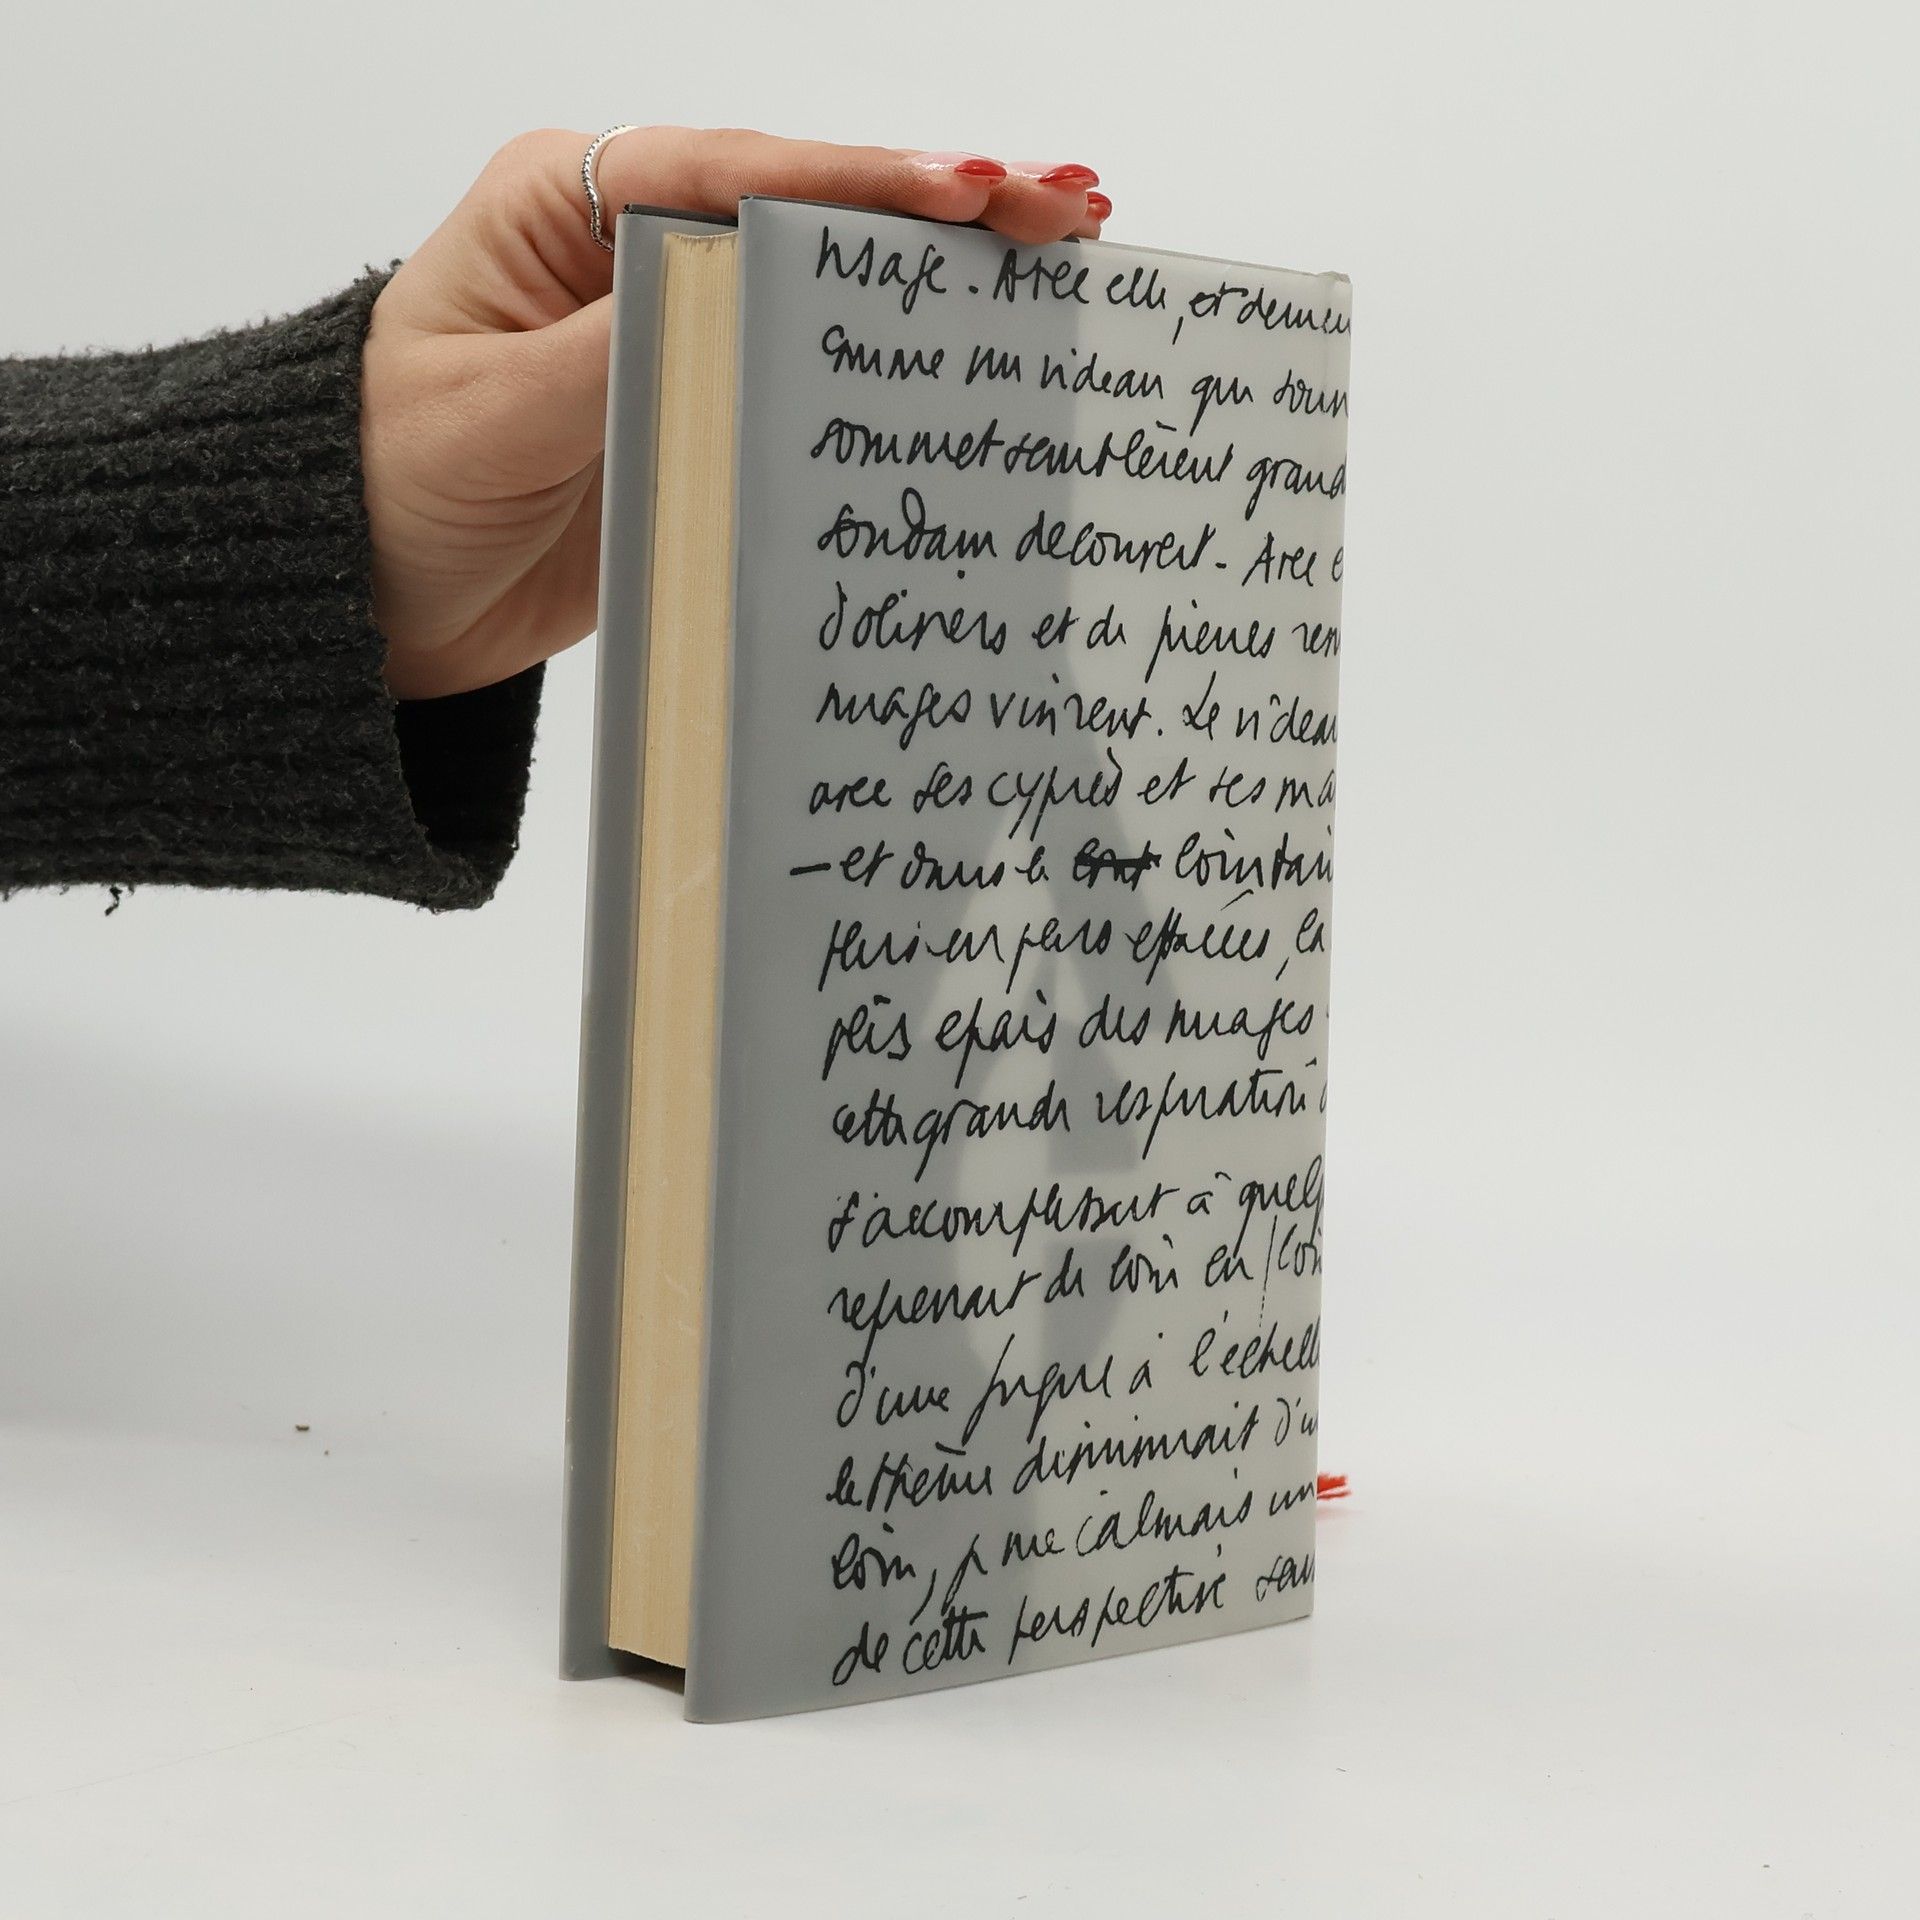 visage. Avec elle, et derrière
comme un rideau qui
sommet semblèrent grand
soudain découvert. Avec e
d'oliviers et de pierres
nuages vinrent. Le rideau
avec ses cyprès et ses ma
— et dans le lointain
plus en plus effacées, la
plus épais des nuages
cette grande respiration d
s'accomplissait à quelq
reprenait de loin en loin
d'une fugue à l'échelle
le thème diminuait d'u
loin, je me calmais un
de cette perspective sans